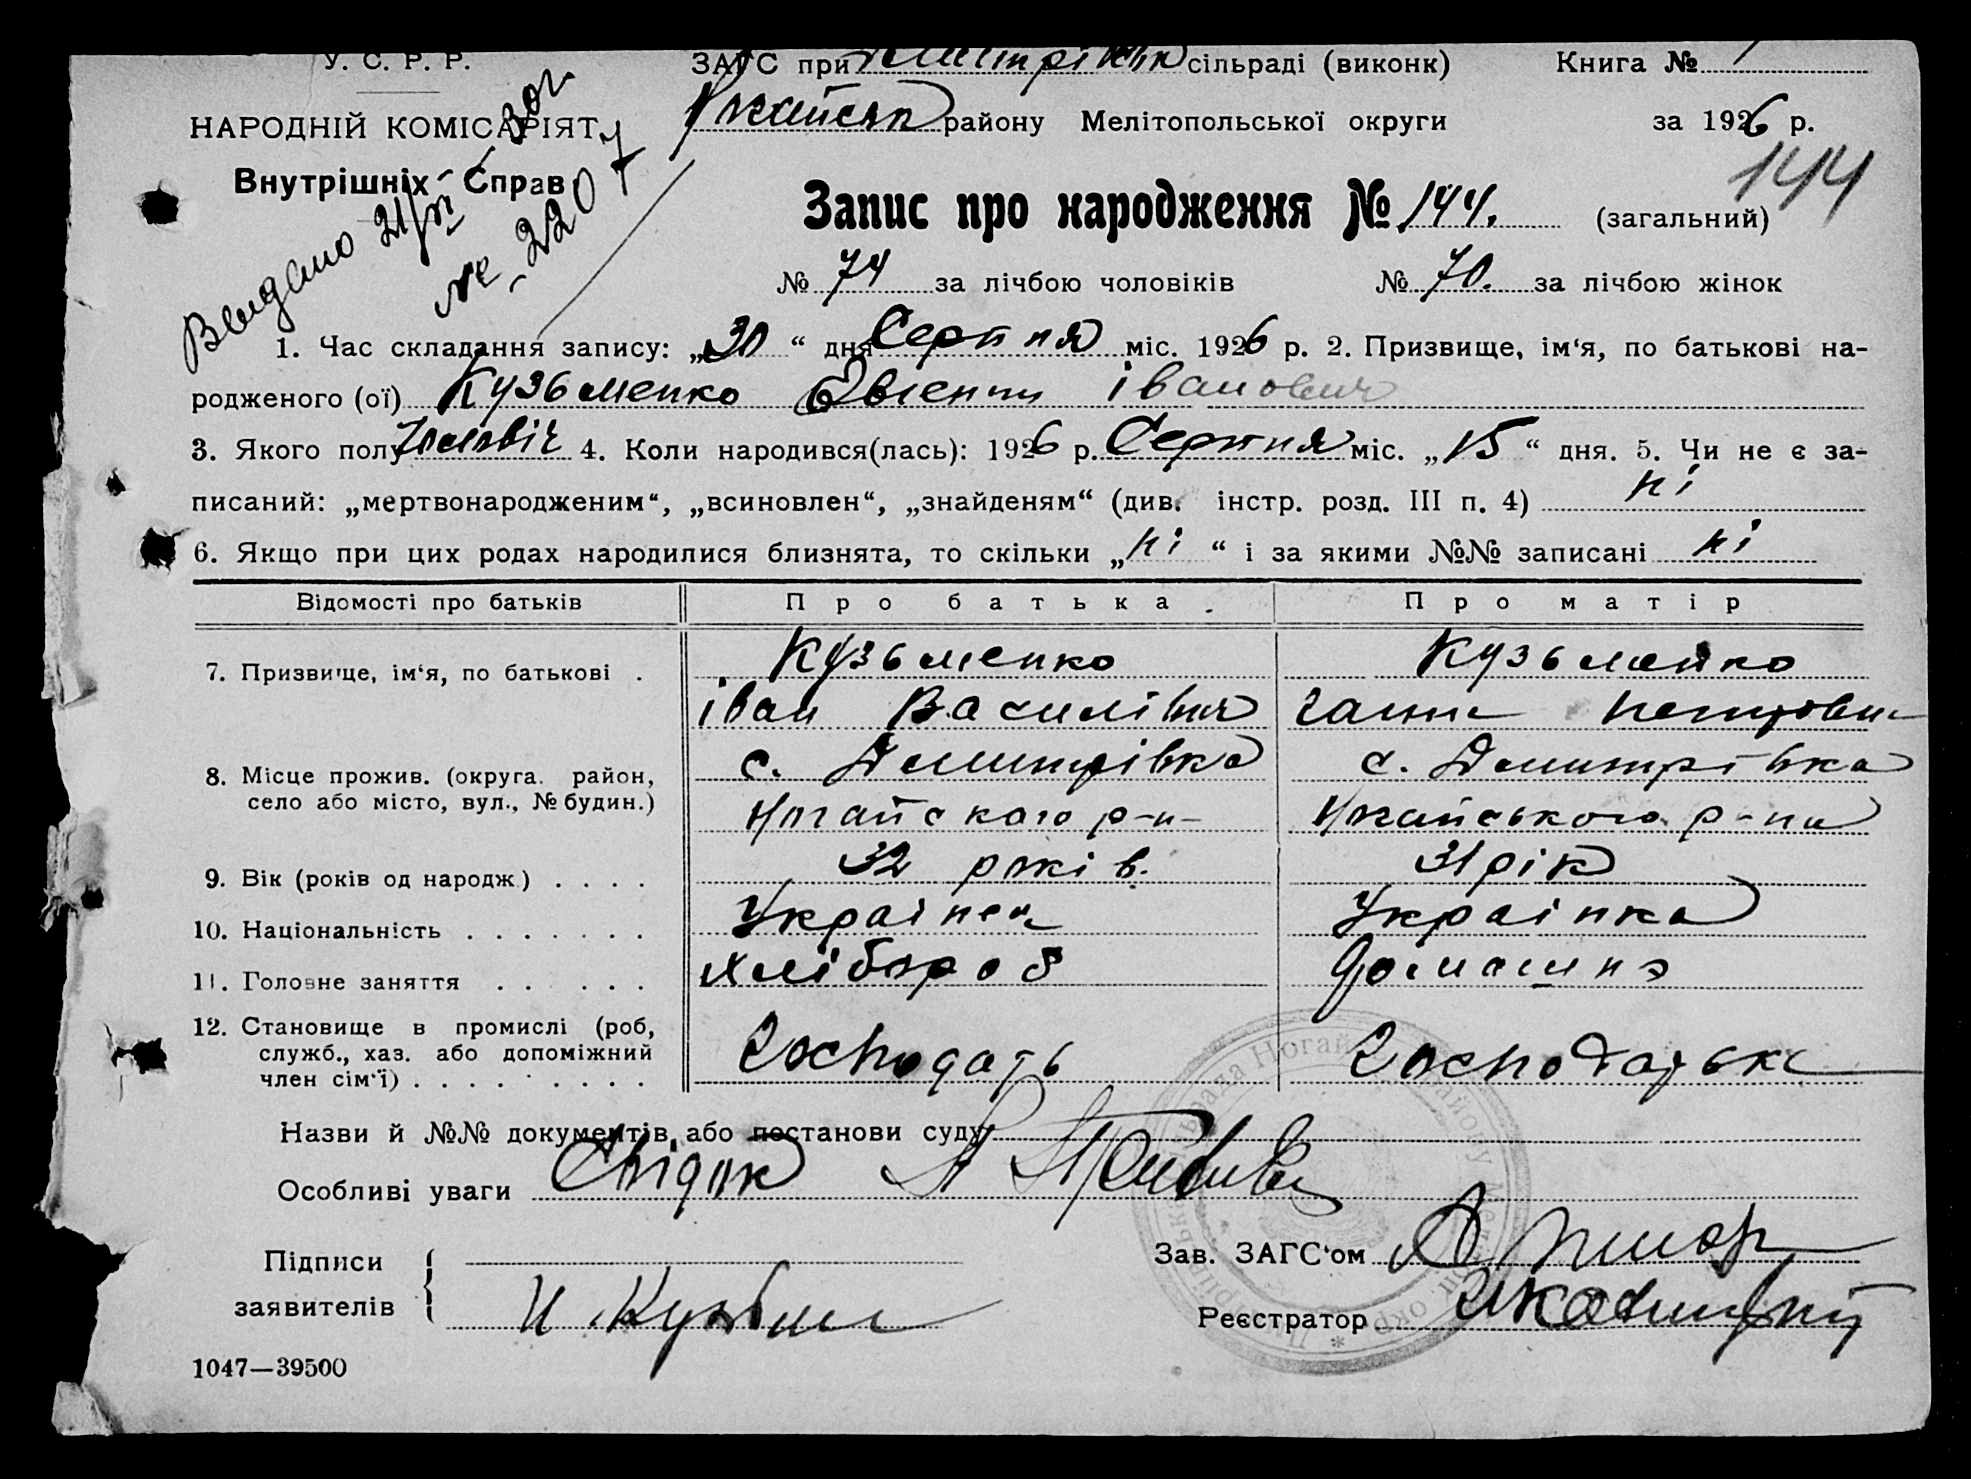 У. С. Р. Р.
НАРОДНІЙ КОМІСАРІЯТ
Внутрішніх Справ
Видано 21/VI - 30 г.
№ - 2207
ЗАГС при Дмитрівськ сільраді (виконк)
Книга № 1
Ногайськ району Мелітопольської округи
за 1926 р.
144
Запис про народження № 144. (загальний)
№ 74 за лічбою чоловіків № 70. за лічбою жінок
1. Час складання запису: „30“ дня Серпня міс. 1926 р. 2. Призвище, ім‘я, по батькові на-
родженого (ої) Кузьменко Евгенти Іванович
3. Якого полу чоловіч 4. Коли народився(лась): 1926 р. Серпня міс. „15“ дня. 5. Чи не є за-
писаний: „мертвонародженим“, „всиновлен“, „знайденям“ (див. інстр. розд. III п. 4) ні
6. Якщо при цих родах народилися близнята, то скільки „ні“ і за якими №№ записані ні
Відомості про батьків Про батька Про матір
7. Призвище, ім‘я, по батькові . Кузьменко Кузьменко
Іван Василівич Ганна Петровна
8. Місце прожив. (округа. район, с. Дмитрівка с. Дмитрівка
село або місто, вул., № будин.) Ногайского р-н- Ногайського р-на
9. Вік (років од народж.) . . . . 32 років. 31 рік
10. Національність . . . . . . . Українец Українка
11. Головне заняття . . . . . . Хлібороб Домашнэ
12. Становище в промислі (роб, служб., хаз. або допоміжний член сім‘ї) . . . . . . . . . . Господарь Господарька
Назви й №№ документів, або постанови суду
Особливі уваги Свідок
Підписи
заявителів И. Кузьмен
Зав. ЗАГС‘ом
Реєстратор
1047—39500